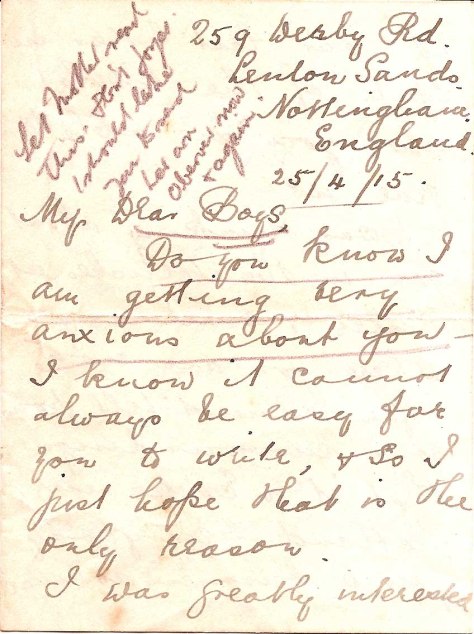 259 Derby Rd.
Lenton Sands
Nottingham.
England.
25/4/15.
Let Mother read
this. Don't forget
I should like
you to read
her an
Observer now
& again.
My Dear Boys,
Do you know I
am getting very
anxious about you –
I know it cannot
always be easy for
you to write, & so I
just hope that is the
only reason.
I was greatly interested